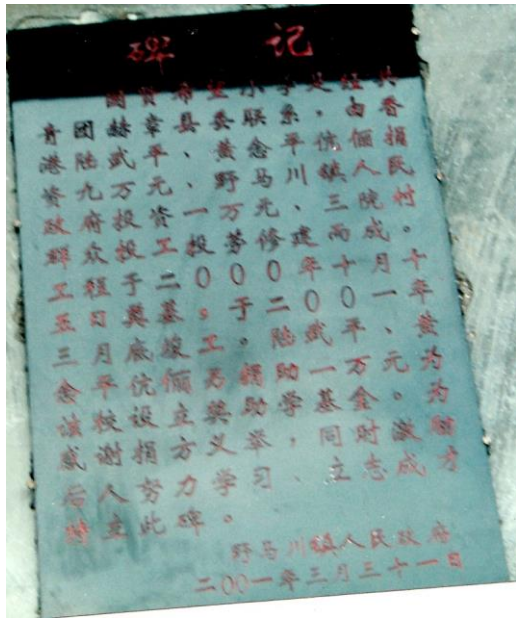 碑 记
圆贤希望小学是经共
青团赫章县委联系，由香
港陆武平、黄念平伉俪捐
资九万元、野马川镇人民
政府投资一万元、三院村
群众投工投劳修建而成。
工程于二〇〇〇年十月十
五日奠基。于二〇〇一年
三月底竣工。陆武平、黄
念平伉俪另捐助一万元为
该校设立奖助学基金。为
感谢捐方义举，同时激励
后人努力学习、立志成才
特立此碑。
野马川镇人民政府
二〇〇一年三月三十一日